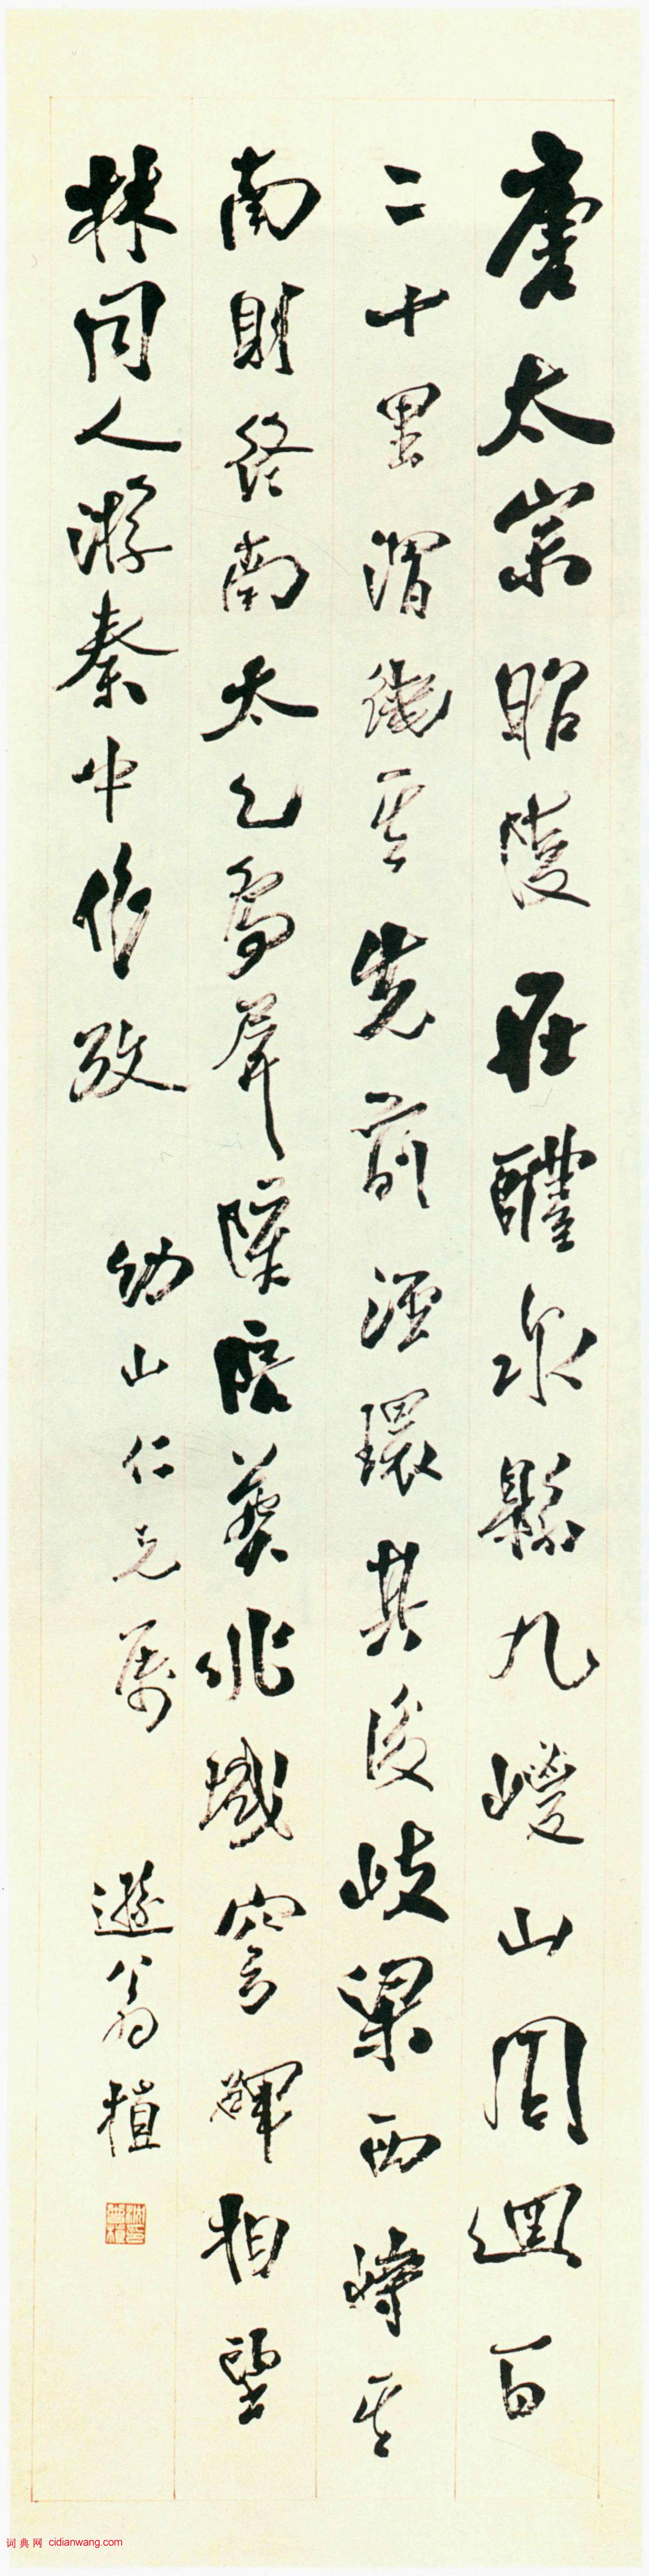 唐太宗昭陵在醴泉縣九嵕山周迴百
二十里渭繞其先前涇環其後岐梁西峙其
南則終南太乙為屏障陪葬兆域穹碑相望
林同人游秦中作攷
幼山仁兄屬
遜翁植
词典网 cidianwang.com